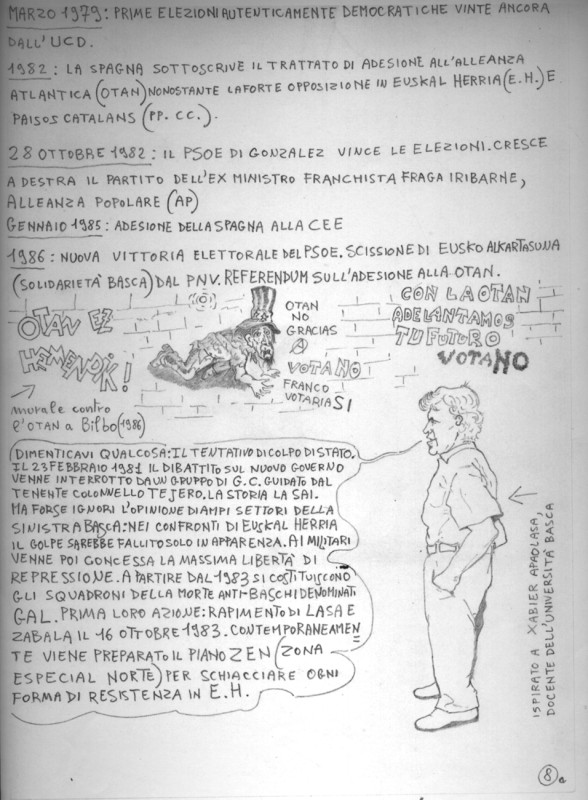 MARZO 1979: PRIME ELEZIONI AUTENTICAMENTE DEMOCRATICHE VINTE ANCORA
DALL'UCD.
1982: LA SPAGNA SOTTOSCRIVE IL TRATTATO DI ADESIONE ALL'ALLEANZA
ATLANTICA (OTAN) NONOSTANTE LA FORTE OPPOSIZIONE IN EUSKAL HERRIA (E.H.) E
PAISOS CATALANS (PP. CC.).
28 OTTOBRE 1982: IL PSOE DI GONZALEZ VINCE LE ELEZIONI. CRESCE
A DESTRA IL PARTITO DELL'EX MINISTRO FRANCHISTA FRAGA IRIBARNE,
ALLEANZA POPOLARE (AP)
GENNAIO 1985: ADESIONE DELLA SPAGNA ALLA CEE
1986: NUOVA VITTORIA ELETTORALE DEL PSOE. SCISSIONE DI EUSKO ALKARTASUNA
(SOLIDARIETÀ BASCA) DAL PNV. REFERENDUM SULL'ADESIONE ALLA OTAN.
OTAN EZ
HEMENDIK!
murale contro
l'OTAN a Bilbo (1986)
OTAN
NO
GRACIAS
VOTA NO
FRANCO
VOTARIA SI
CON LA OTAN
ADELANTAMOS
TU FUTURO
VOTA NO
DIMENTICAVI QUALCOSA: IL TENTATIVO DI COLPO DI STATO.
IL 23 FEBBRAIO 1981 IL DIBATTITO SUL NUOVO GOVERNO
VENNE INTERROTTO DA UN GRUPPO DI G.C. GUIDATO DAL
TENENTE COLONNELLO TEJERO. LA STORIA LA SAI.
MA FORSE IGNORI L'OPINIONE DI AMPI SETTORI DELLA
SINISTRA BASCA: NEI CONFRONTI DI EUSKAL HERRIA
IL GOLPE SAREBBE FALLITO SOLO IN APPARENZA. AI MILITARI
VENNE POI CONCESSA LA MASSIMA LIBERTÀ DI
REPRESSIONE. A PARTIRE DAL 1983 SI COSTITUISCONO
GLI SQUADRONI DELLA MORTE ANTI-BASCHI DENOMINATI
GAL. PRIMA LORO AZIONE: RAPIMENTO DI LASA E
ZABALA IL 16 OTTOBRE 1983. CONTEMPORANEAMEN
TE VIENE PREPARATO IL PIANO ZEN (ZONA
ESPECIAL NORTE) PER SCHIACCIARE OGNI
FORMA DI RESISTENZA IN E.H.
ISPIRATO A XABIER APAOLASA,
DOCENTE DELL'UNIVERSITÀ BASCA
8a